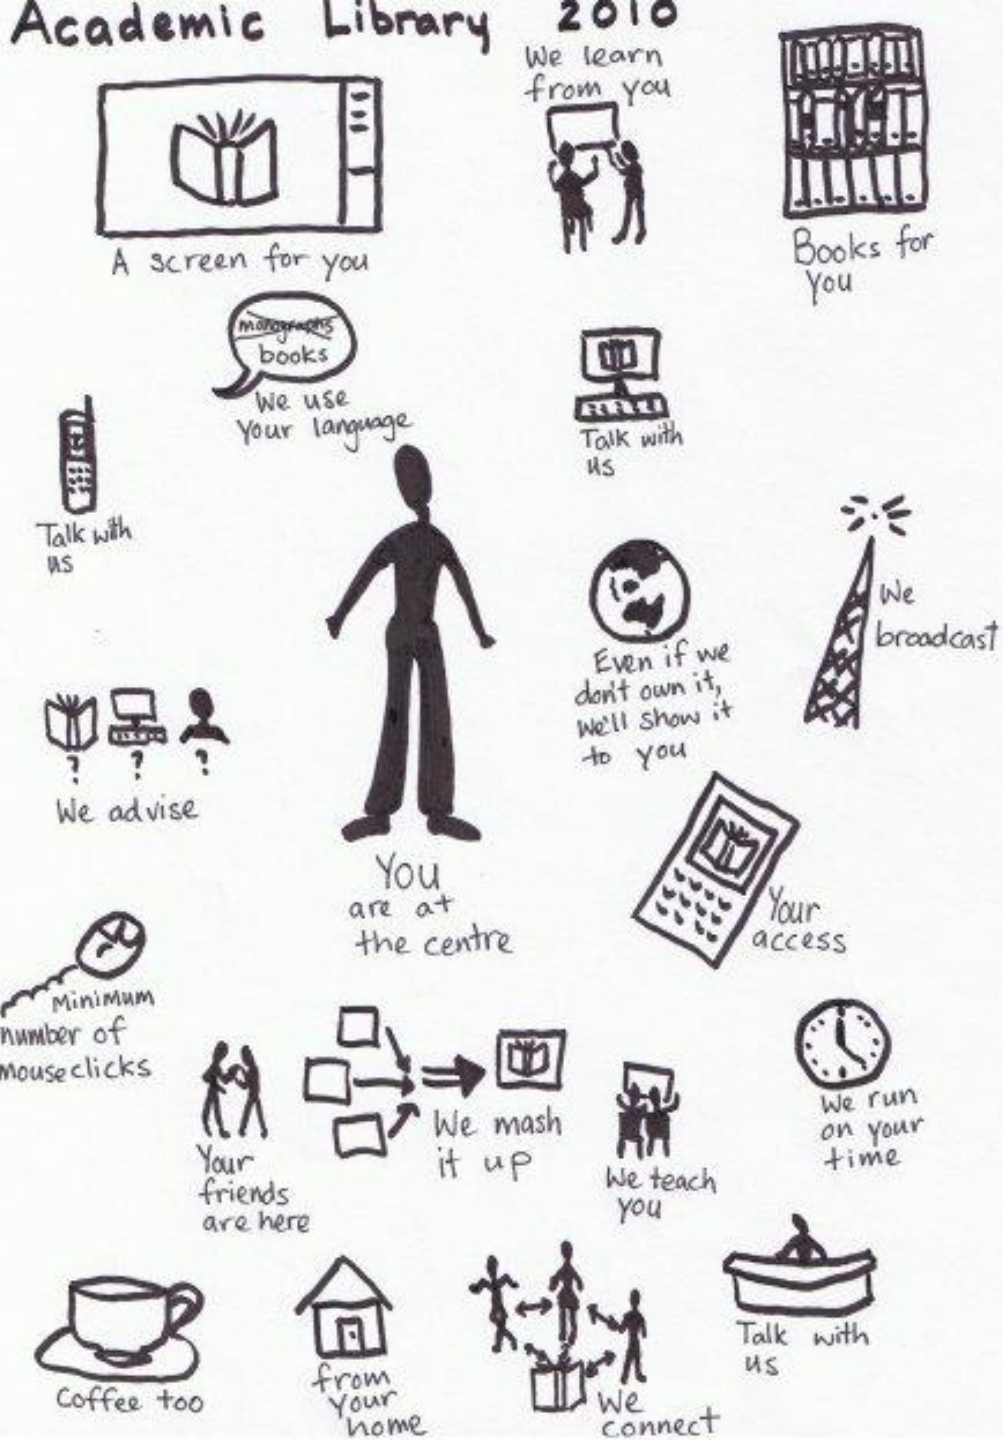 Academic Library 2010
We learn
from you
A screen for you
Books for
You
monographs
books
We use
Your language
Talk with
us
Talk with
us
We
broadcast
Even if we
don't own it,
We'll show it
to you
? ? ?
We advise
You
are at
the centre
Your
access
Minimum
number of
mouseclicks
Your
friends
are here
We mash
it up
We teach
you
We run
on your
time
Coffee too
from
your
home
We
connect
Talk with
us